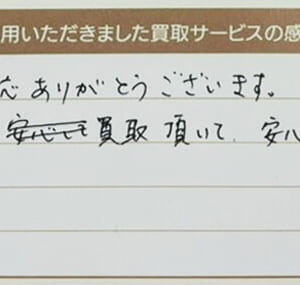 用いただきました買取サービスの感
応ありがとうございます。
安心して買取頂いて、安心